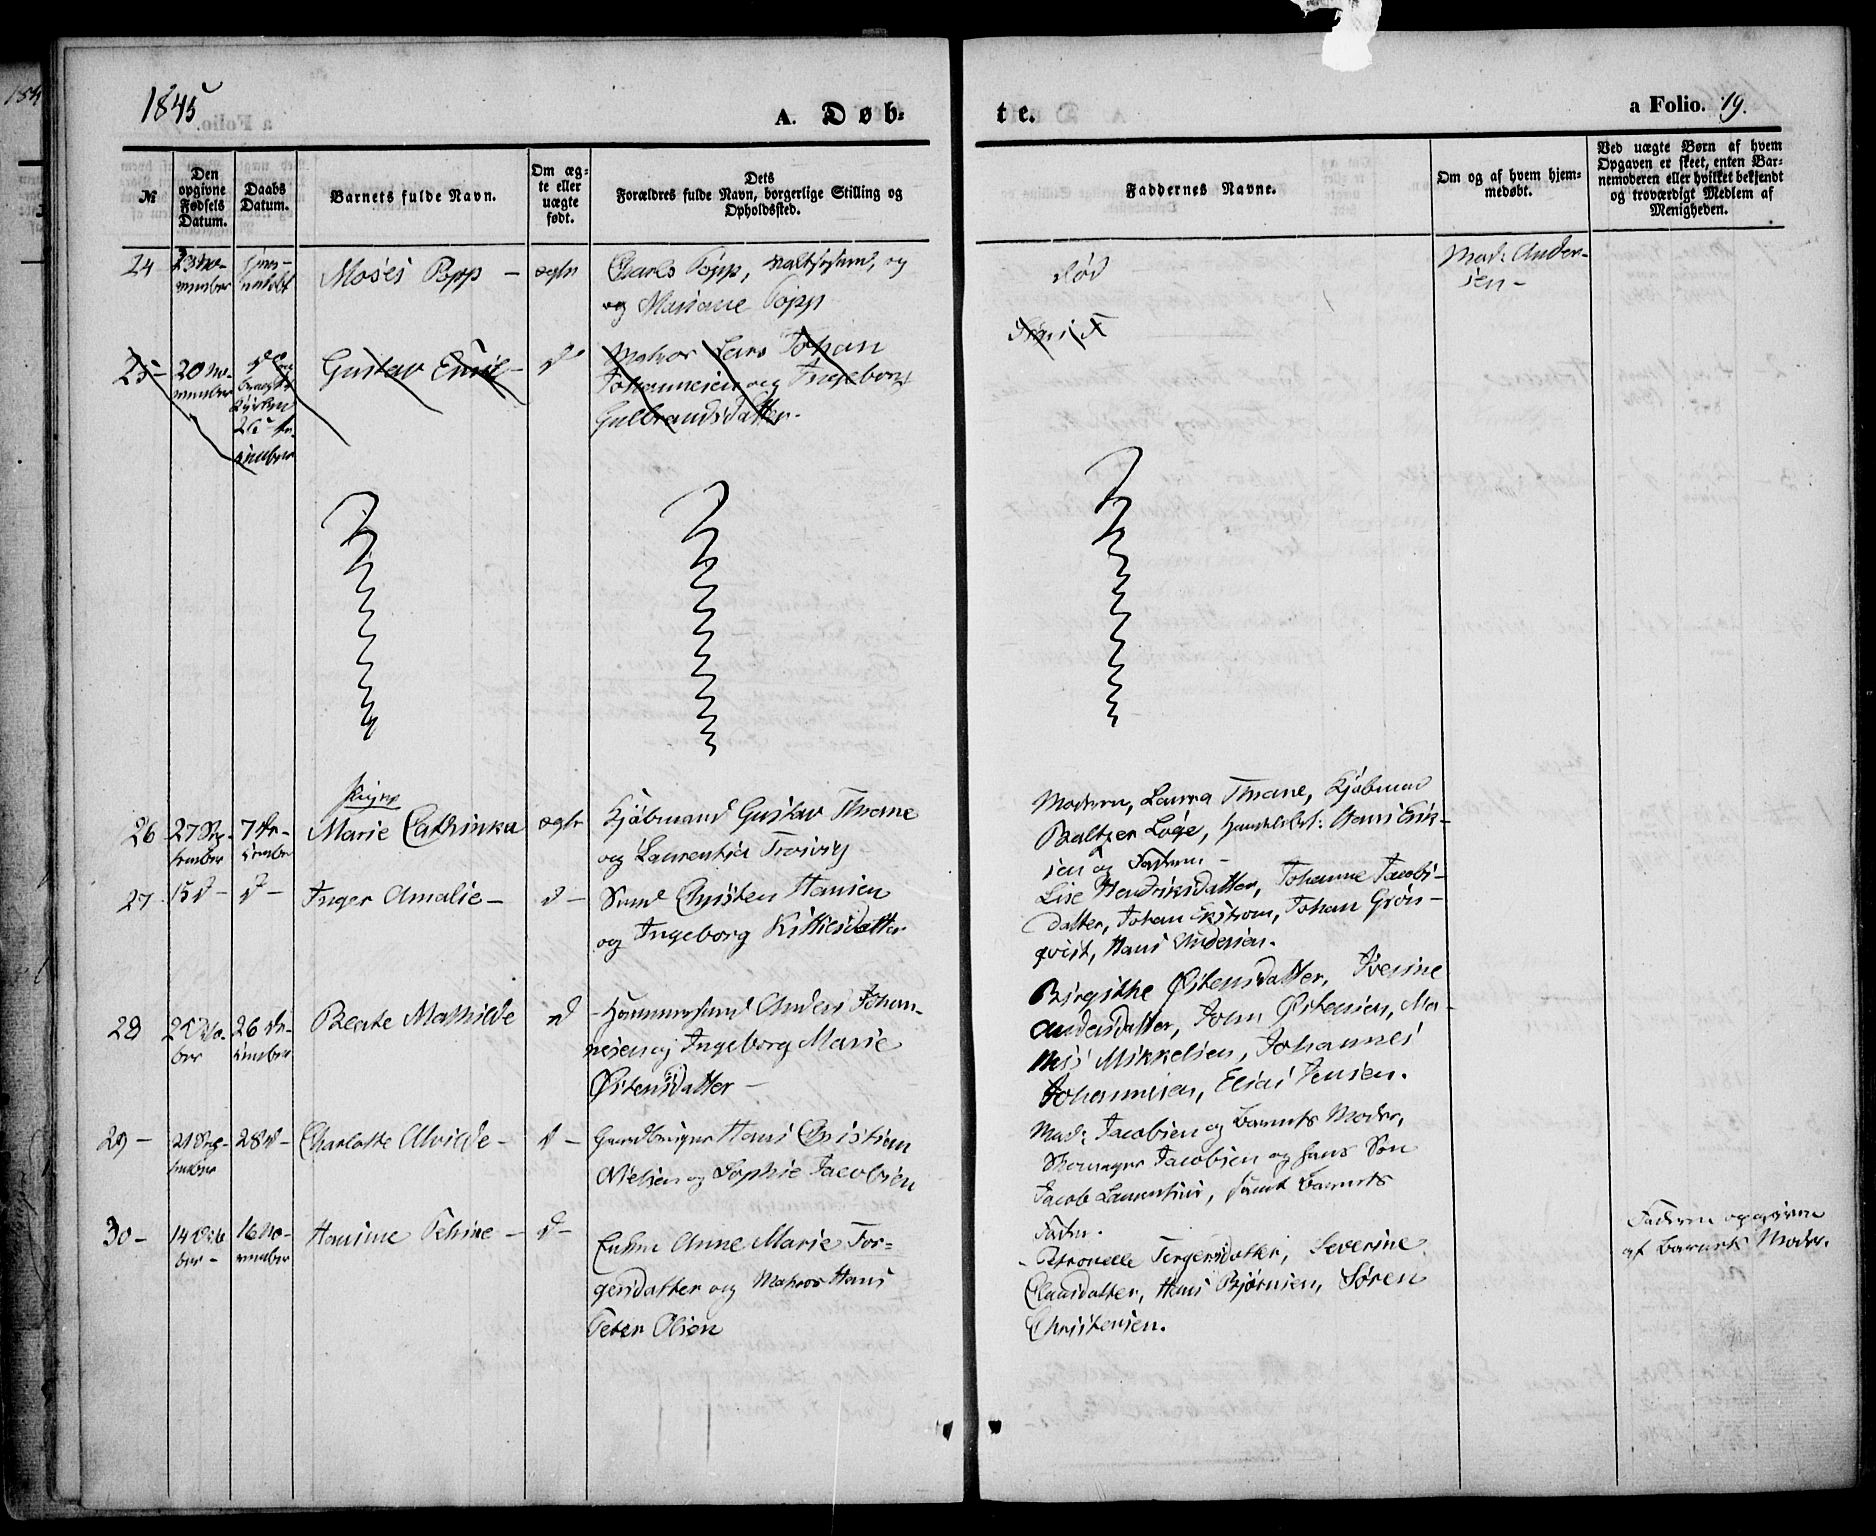 1845
A. Døb-
te.
a Folio. 19.
№
Den opgivne Fødsels Datum.
Daabs Datum.
Barnets fulde Navn.
Om æg-
te eller
uægte
født.
Dets
Forældres fulde Navn, borgerlige Stilling og
Opholdssted.
Faddernes Navne.
Om og af hvem hjem-
medøbt.
Ved uægte Børn af hvem
Opgaven er skeet, enten Bar-
nemoderen eller hvilket bekjendt
og troværdigt Medlem af
Menigheden.
24
23 No-
vember
Moses Popp -
ægte
Charls Popp, og
og Mariane Popp
død
Mad: Ander-
sen -
25 -
20 No-
vember
Gustav Emil -
d
Matros Lars Johan
Johannesen og Ingeborg
Gulbrandsdatter.
26
27 Sep-
tember
7 De-
cember
Pigen
Marie Cathinka
ægte
Kjøbmand Gustav Thrane
og Laurentia Trosvig
Moderen, Laura Thrane, Kjøbmand
Baltzer Løge, Hans Erik-
sen og Faderen -
27
15 d -
d -
Inger Amalie -
d -
Christen Hansen
og Ingeborg Kittilsdatter
Lise Hendriksdatter, Johanne Jacobs-
datter, Johan Ekstrom, Johan Grøn-
qvist, Hans Andersen.
28
26 De-
cember
Beate Mathilde
d
Anders Johan-
nesen og Ingeborg Marie
Østensdatter -
Birgithe Østensdatter, Iverine
Andersdatter, John Østensen, Mo-
Mikkelsen, Johannes
Johannesen, Elias Jensen.
29 -
21 Sep-
tember
28 d -
Charlotte Alvilde -
d -
Hans Christian
Nielsen og Sophie Jacobsen
Mad: Jacobsen og Barnets Moder,
Jacobsen og hans Søn
Jacob Laurentius, samt Barnets
Fader.
30 -
14 Octo-
ber -
16 No-
vember
Hansine Petrine -
d -
Enken Anne Marie Tor-
gersdatter og Matros Hans
Peter Olsen
Petronelle Torgersdatter, Severine
Clausdatter, Hans Bjørnsen, Søren
Christensen.
Faderen opgiven
af Barnets Moder.